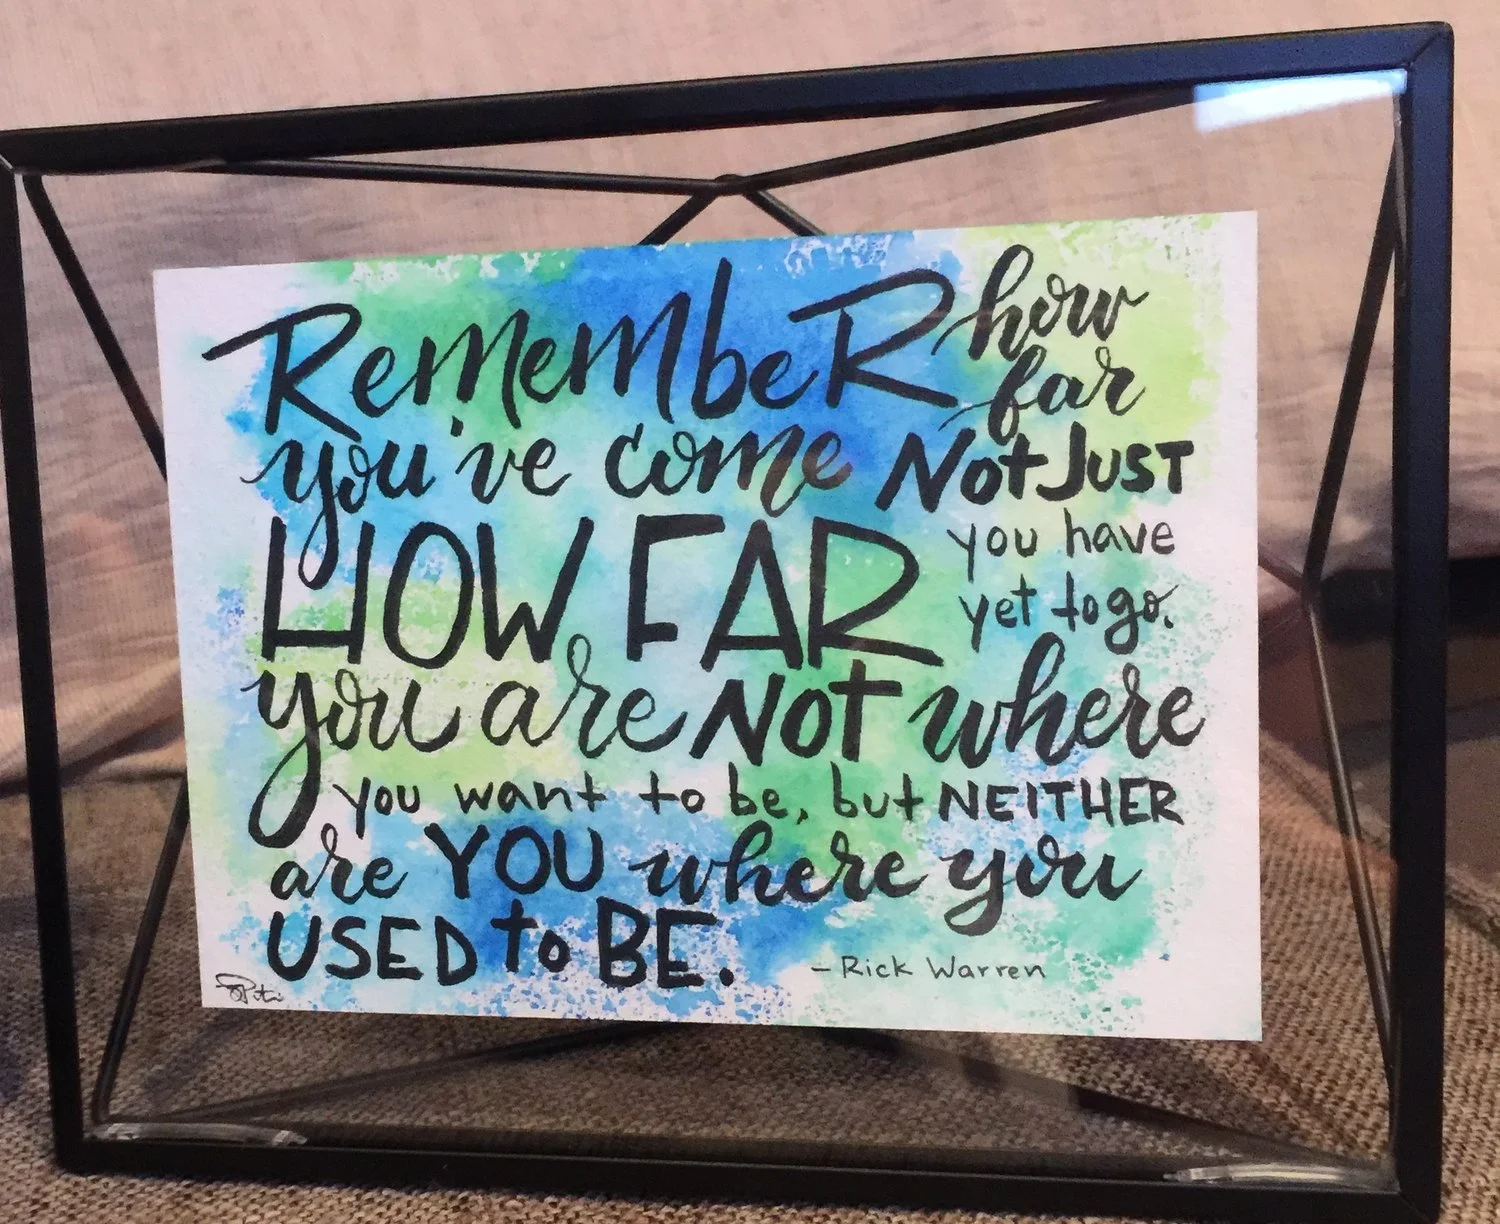 RemembeR how
far
you've come Not JUST
HOW FAR you have
yet to go.
you are NOT where
you want to be, but NEITHER
are YOU where you
USED to BE.
- Rick Warren